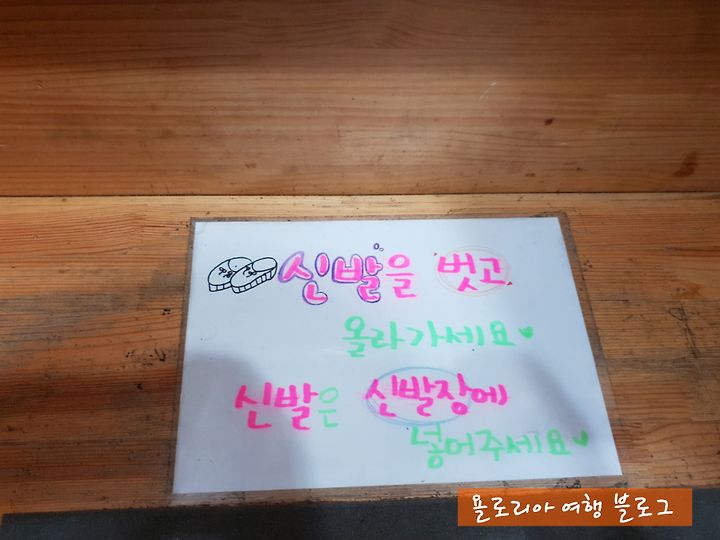 신발을 벗고
올라가세요♥
신발은 신발장에
넣어주세요♥
욜로리아 여행 블로그